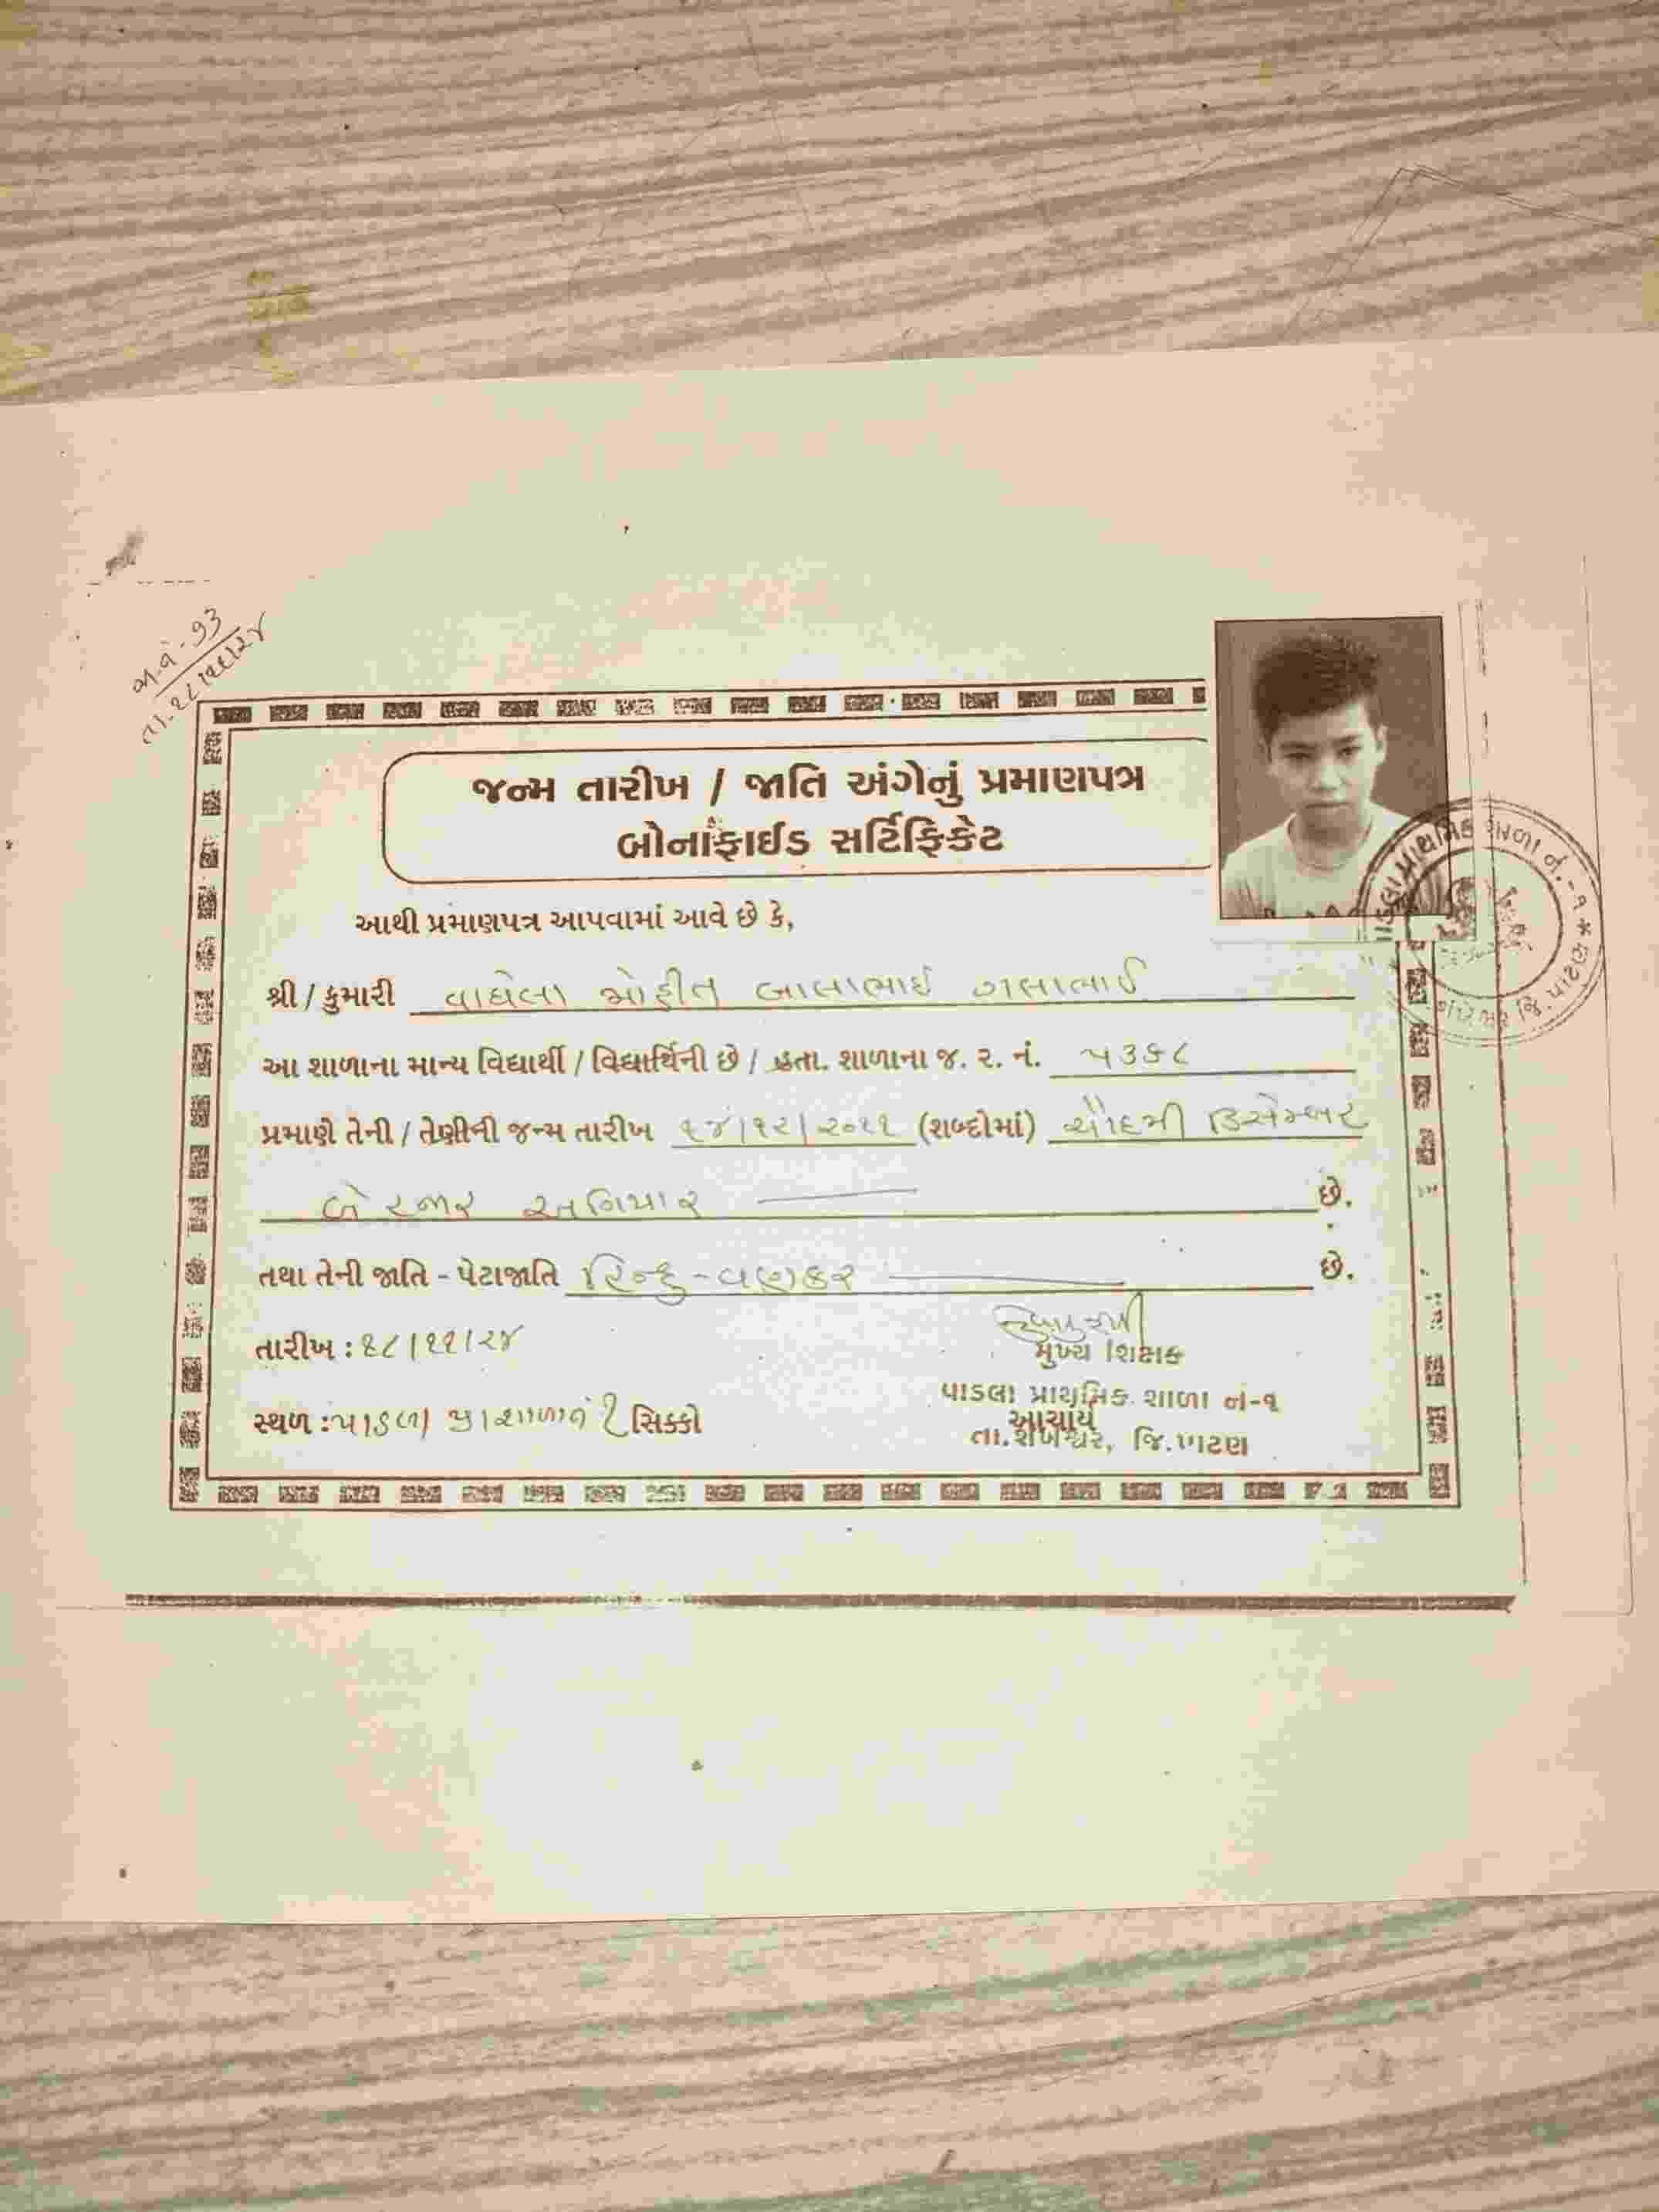 જા.નં - ૧૩
તા. ૨૮/૧૧/૨૪
જન્મ તારીખ / જાતિ અંગેનું પ્રમાણપત્ર
બોનાફાઈડ સર્ટિફિકેટ
આથી પ્રમાણપત્ર આપવામાં આવે છે કે,
શ્રી / કુમારી વાઘેલા મોહીત બાલાભાઈ
આ શાળાના માન્ય વિદ્યાર્થી / વિદ્યાર્થિની છે / હતા. શાળાના જ. ૨. નં. ૫૩૬૮
પ્રમાણે તેની / તેણીની જન્મ તારીખ ૧૪/૧૨/૨૦૧૧ (શબ્દોમાં) ચૌદમી ડિસેમ્બર
બે હજાર અગિયાર છે.
તથા તેની જાતિ - પેટાજાતિ હિન્દુ - વણકર છે.
તારીખ : ૨૮/૧૧/૨૪
મુખ્ય શિક્ષક
પાડલા પ્રાથમિક શાળા નં-૧
સ્થળ : પાડલા પ્રા શાળા નં ૧ સિક્કો
આચાર્ય
તા.શંખેશ્વર, જિ.પાટણ
પાડલા પ્રાથમિક શાળા નં.-૧ * જિ. પાટણ